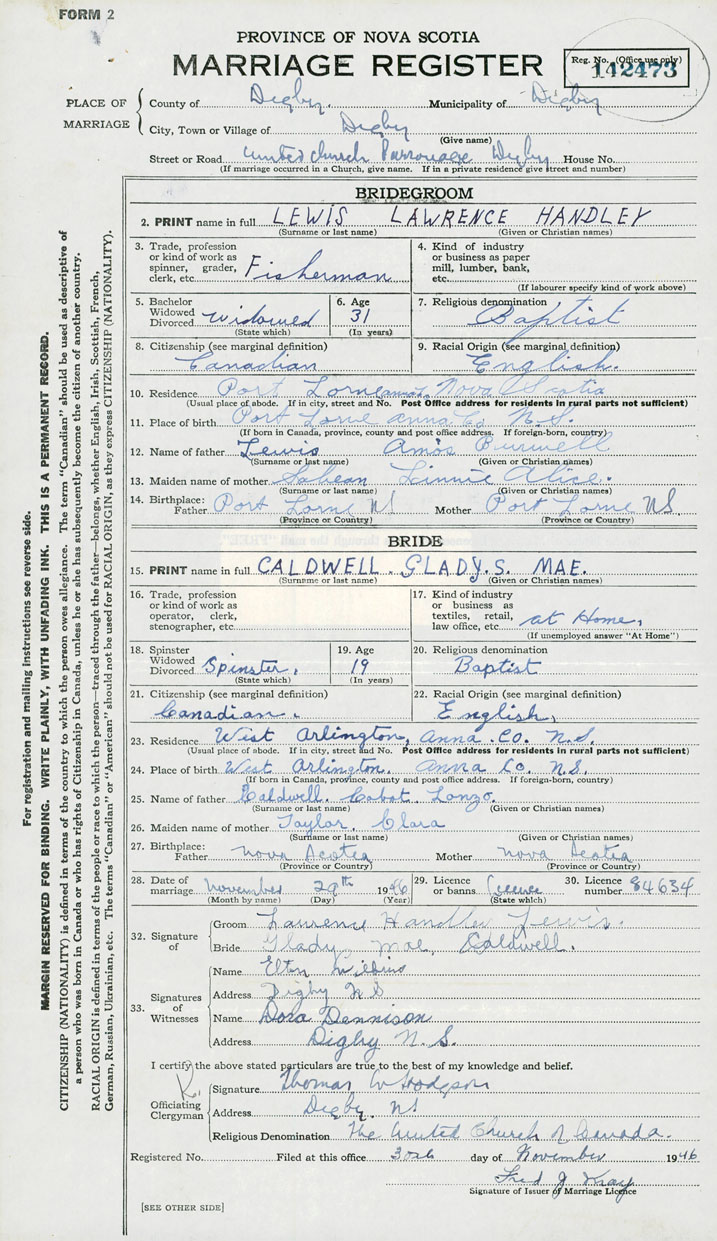 FORM 2
PROVINCE OF NOVA SCOTIA
MARRIAGE REGISTER
Reg. No. (Office use only)
142473
PLACE OF MARRIAGE
County of Digby. Municipality of Digby
City, Town or Village of Digby
(Give name)
Street or Road United Church Parsonage Digby House No.
(If marriage occurred in a Church, give name. If in a private residence give street and number)
BRIDEGROOM
2. PRINT name in full LEWIS LAWRENCE HANDLEY
(Surname or last name) (Given or Christian names)
3. Trade, profession or kind of work as spinner, grader, clerk, etc. Fisherman
4. Kind of industry or business as paper mill, lumber, bank, etc.
(If labourer specify kind of work above)
5. Bachelor Widowed Divorced Widowed
(State which)
6. Age 31
(In years)
7. Religious denomination
Baptist
8. Citizenship (see marginal definition)
Canadian
9. Racial Origin (see marginal definition)
English.
10. Residence Port Lorne Nova Scotia
(Usual place of abode. If in city, street and No. Post Office address for residents in rural parts not sufficient)
11. Place of birth Port Lorne anna Co N.S.
(If born in Canada, province, county and post office address. If foreign-born, country)
12. Name of father Lewis Amos Burwell
(Surname or last name) (Given or Christian names)
13. Maiden name of mother Linnie Alice.
(Surname or last name) (Given or Christian names)
14. Birthplace: Father Port Lorne NS Mother Port Lorne NS.
(Province or Country) (Province or Country)
BRIDE
15. PRINT name in full CALDWELL. GLADY.S. MAE.
(Surname or last name) (Given or Christian names)
16. Trade, profession or kind of work as operator, clerk, stenographer, etc.
17. Kind of industry or business as textiles, retail, law office, etc. at Home,
(If unemployed answer "At Home")
18. Spinster Widowed Divorced Spinster.
(State which)
19. Age 19
(In years)
20. Religious denomination
Baptist
21. Citizenship (see marginal definition)
Canadian.
22. Racial Origin (see marginal definition)
English,
23. Residence West Arlington, Anna. Co. N.S.
(Usual place of abode. If in city, street and No. Post Office address for residents in rural parts not sufficient)
24. Place of birth West Arlington. Anna Co. N.S.
(If born in Canada, province, county and post office address. If foreign-born, country)
25. Name of father Caldwell. Cobat Lonzo.
(Surname or last name) (Given or Christian names)
26. Maiden name of mother Taylor. Clara
(Surname or last name) (Given or Christian names)
27. Birthplace: Father Nova Scotia Mother Nova Scotia
(Province or Country) (Province or Country)
28. Date of marriage November 29th 1946
(Month by name) (Day) (Year)
29. Licence or banns Licence
(State which)
30. Licence number 84634
32. Signature of
Groom Laurence Handley Lewis.
Bride Glady, Mae, Caldwell.
33. Signatures of Witnesses
Name Elton
Address Digby NS
Name Dora Dennison
Address Digby N.S.
I certify the above stated particulars are true to the best of my knowledge and belief.
Officiating Clergyman
Signature Thomas W Hodgson
Address Digby NS
Religious Denomination The United Church of Canada.
Registered No. Filed at this office 30th day of November 1946
Fred J
Signature of Issuer of Marriage Licence
[SEE OTHER SIDE]
For registration and mailing instructions see reverse side.
MARGIN RESERVED FOR BINDING. WRITE PLAINLY, WITH UNFADING INK. THIS IS A PERMANENT RECORD.
CITIZENSHIP (NATIONALITY) is defined in terms of the country to which the person owes allegiance. The term "Canadian" should be used as descriptive of
a person who was born in Canada or who has rights of Citizenship in Canada, unless he or she has subsequently become the citizen of another country.
RACIAL ORIGIN is defined in terms of the people or race to which the person—traced through the father—belongs, whether English, Irish, Scottish, French,
German, Russian, Ukrainian, etc. The terms "Canadian" or "American" should not be used for RACIAL ORIGIN, as they express CITIZENSHIP (NATIONALITY).